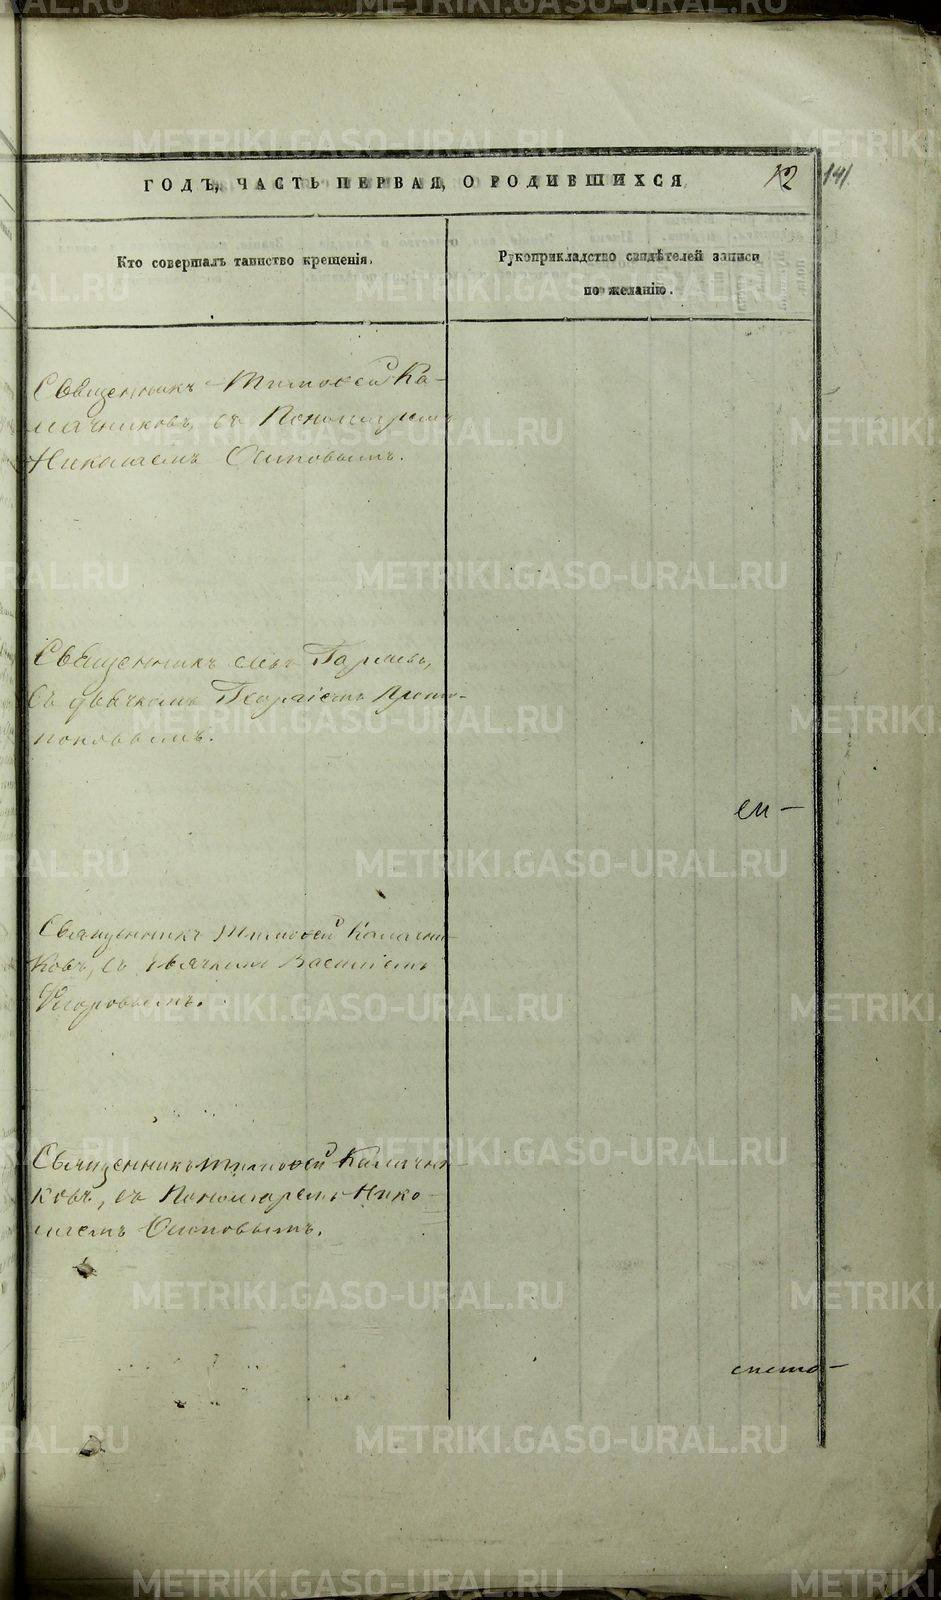 METRIKI.GASO-URAL.RU
ГОДЪ, ЧАСТЬ ПЕРВАЯ, О РОДИВШИХСЯ 12 141
Кто совершалъ таинство крещенія.
Рукоприкладство свидѣтелей записи
по желанію.
Священникъ Тимоѳей Ка-
лачниковъ, съ Пономаремъ
Николаемъ Осиповымъ.
Священникъ
съ дьячкомъ Георгіемъ Прото-
поповымъ.
Священникъ Тимоѳей Калачни-
ковъ, съ дьячкомъ Василіемъ
Егоровымъ.
Священникъ Тимоѳей Калачни-
ковъ, съ Пономаремъ Нико-
лаемъ Осиповымъ.